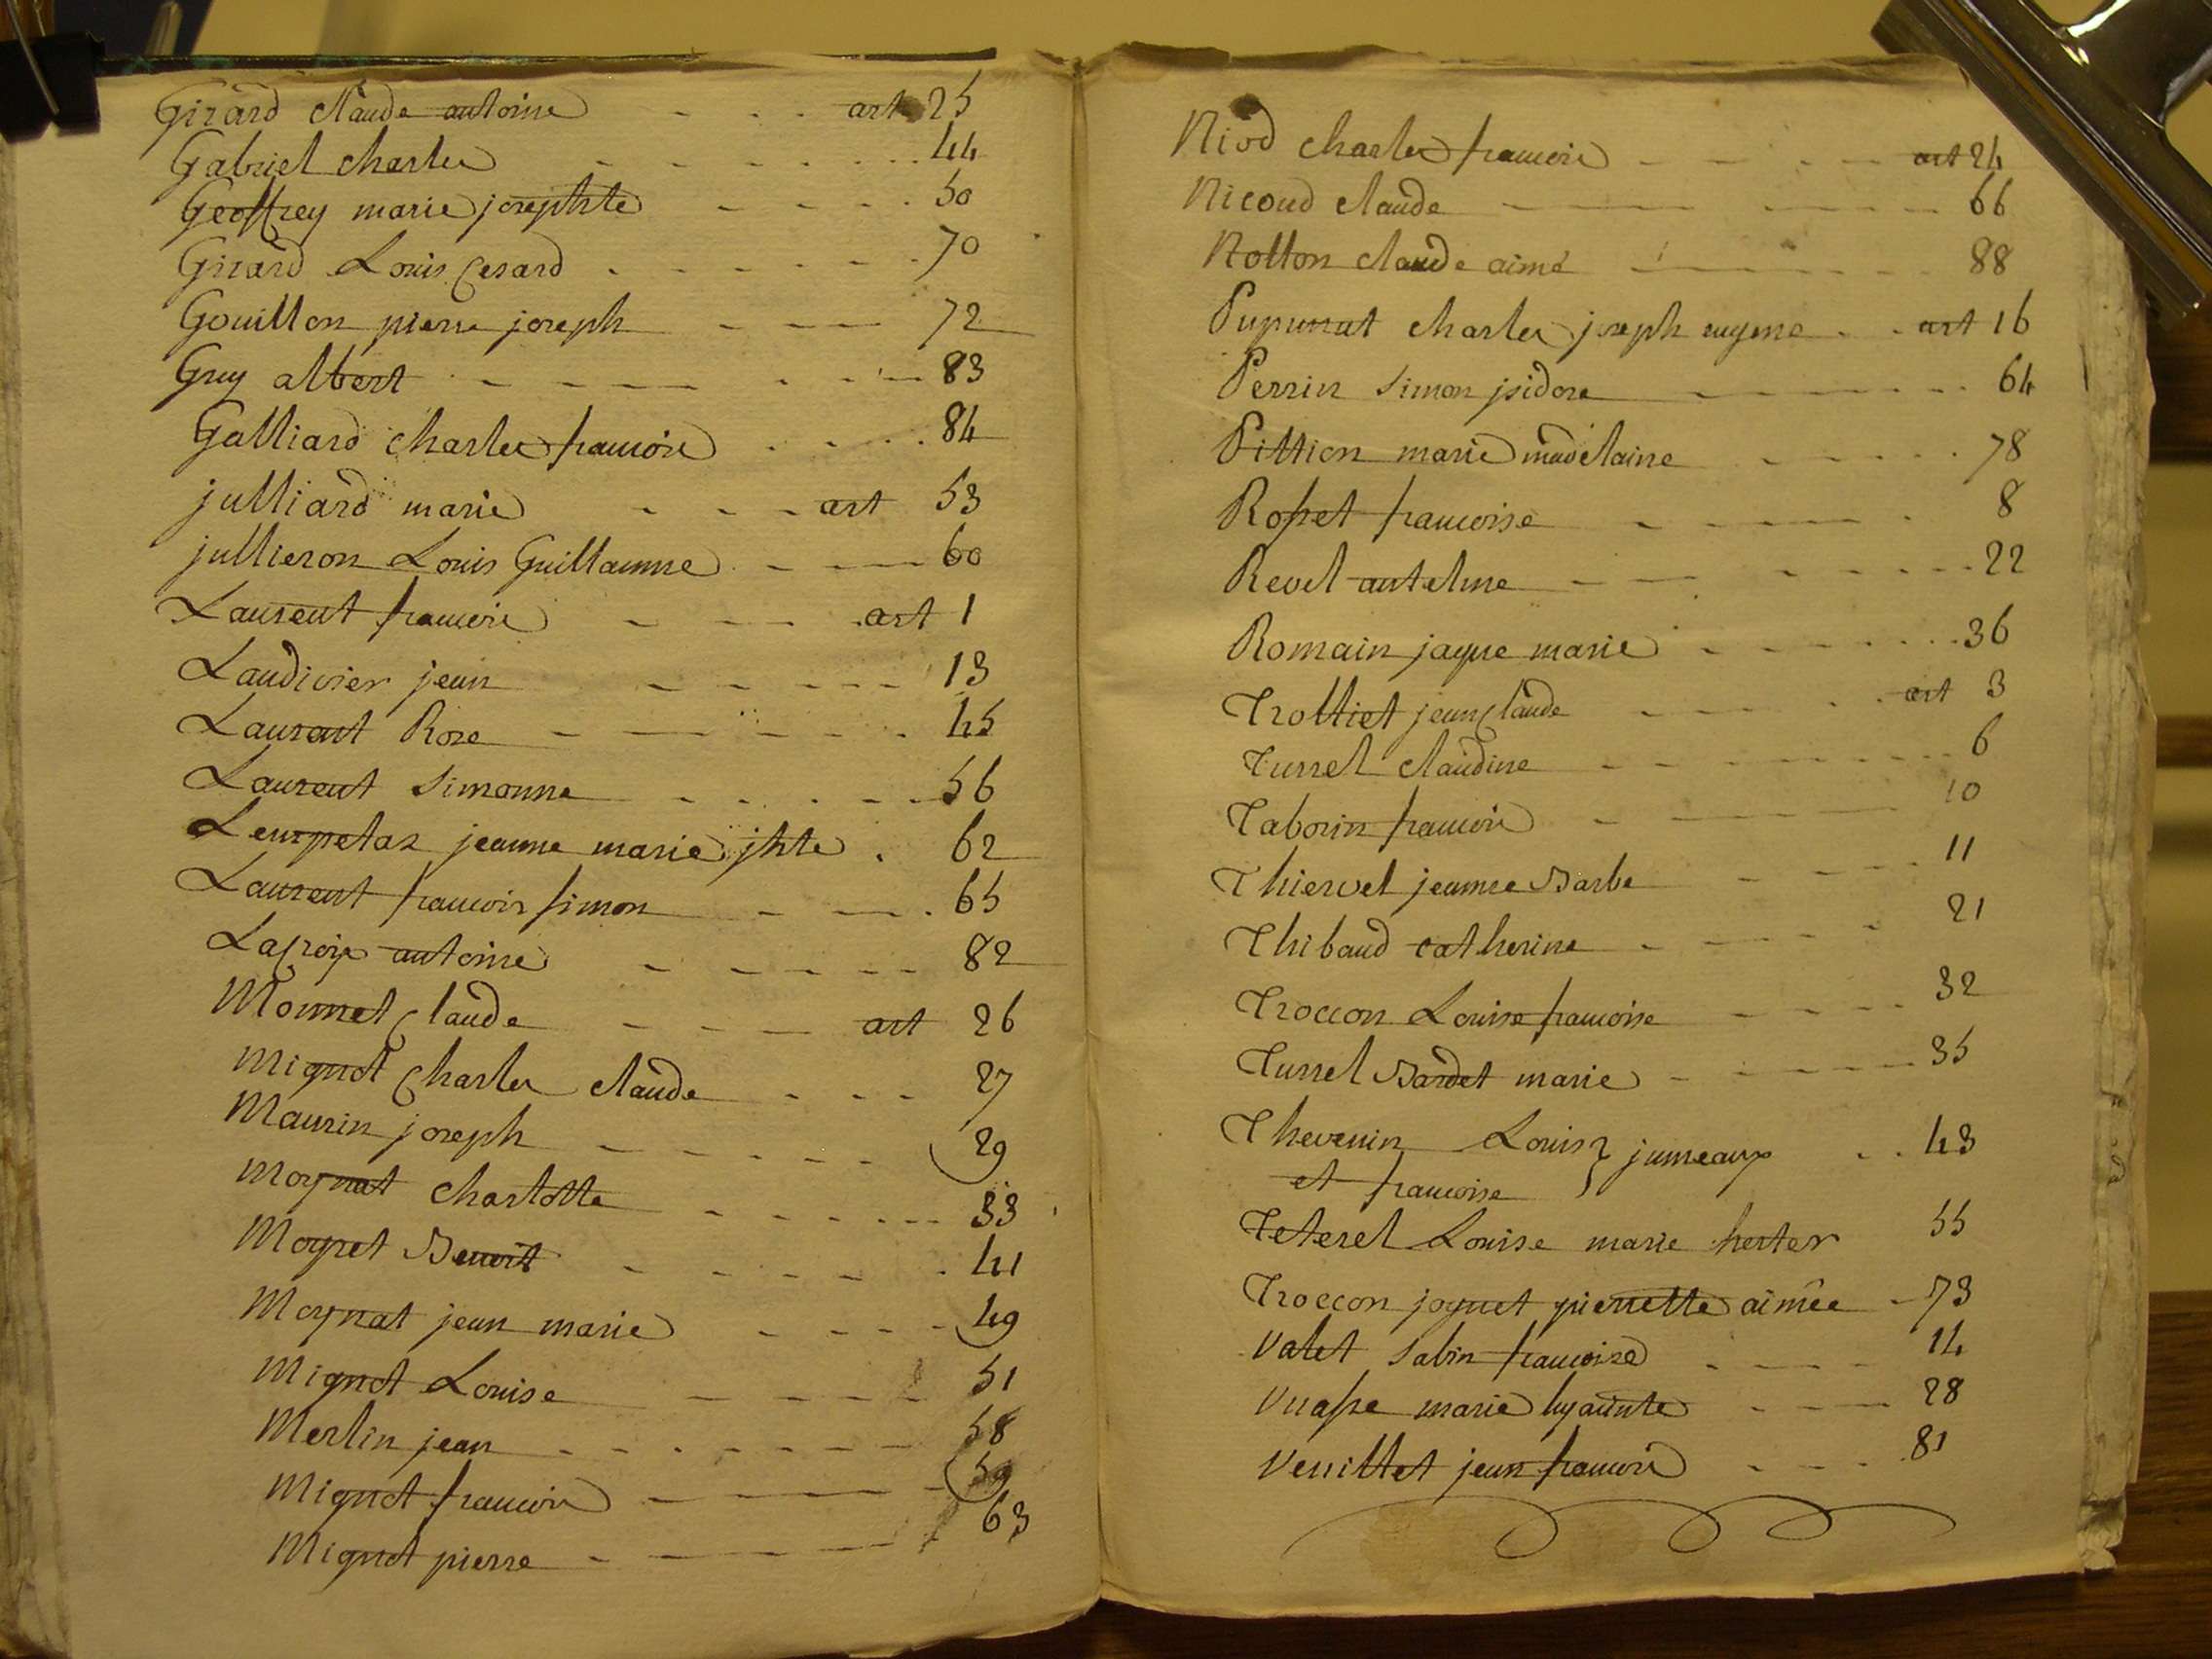 Girard claude antoine - - - art 25
Gabriel charles - - - - - - - 44
Geoffrey marie josephte - - - - 50
Girard Louis Cesard - - - - - - 70
Gouillon pierre joseph - - - 72
Guy albert - - - - - - - 83
Galliard charles francois - - - - 84
julliard marie - - - art 53
jullieron Louis Guillaume - - - 60
Laurent francois - - - art 1
Laudivier jean - - - - - 13
Laurent Rose - - - - - - 45
Laurent Simonne - - - - - - 56
jeanne marie jhte . 62
Laurent francois simon - - - 65
Lacroix antoine - - - - - 82
Monnet Claude - - - art 26
Mignot Charles claude - - - 27
Maurin joseph - - - - - - 29
Moynat charlotte - - - - - - 33
Moynet Benoit - - - - - 41
Moynat jean marie - - - - 49
Mignot Louise - - - - - 51
Merlin jean - - - - - - - 58
Mignot francois - - - - 59
Mignot pierre - - - - 63
Niod charles francois - - - - art 24
Nicoud claude - - - - - 66
Nollon claude aimé - - - - - 88
Pupunat charles joseph eugene - - art 16
Perrin Simon jsidore - - - - - 64
Pittion marie madelaine - - - - - 78
Rosset francoise - - - - - 8
Revel antelme - - - - - - - 22
Romain jaque marie - - - - - - 36
Trolliet jean Claude - - - - art 3
Turrel claudine - - - - - - - 6
Taborin francois - - - - 10
Thiervet jeanne Barbe - - - - 11
Thibaud catherine - - - - - 21
Troccon Louise francoise - - - - 32
Turrel Bardet marie - - - - - 35
Thevenin Louis } jumeaux - - 43
et francoise
Teterel Louise marie hester 55
Troccon joynet pierrette aimée - 73
Valet Sabin francoise - - - - 14
Vuasse marie hyacinte - - - 28
Veuillet jean francois - - - 81